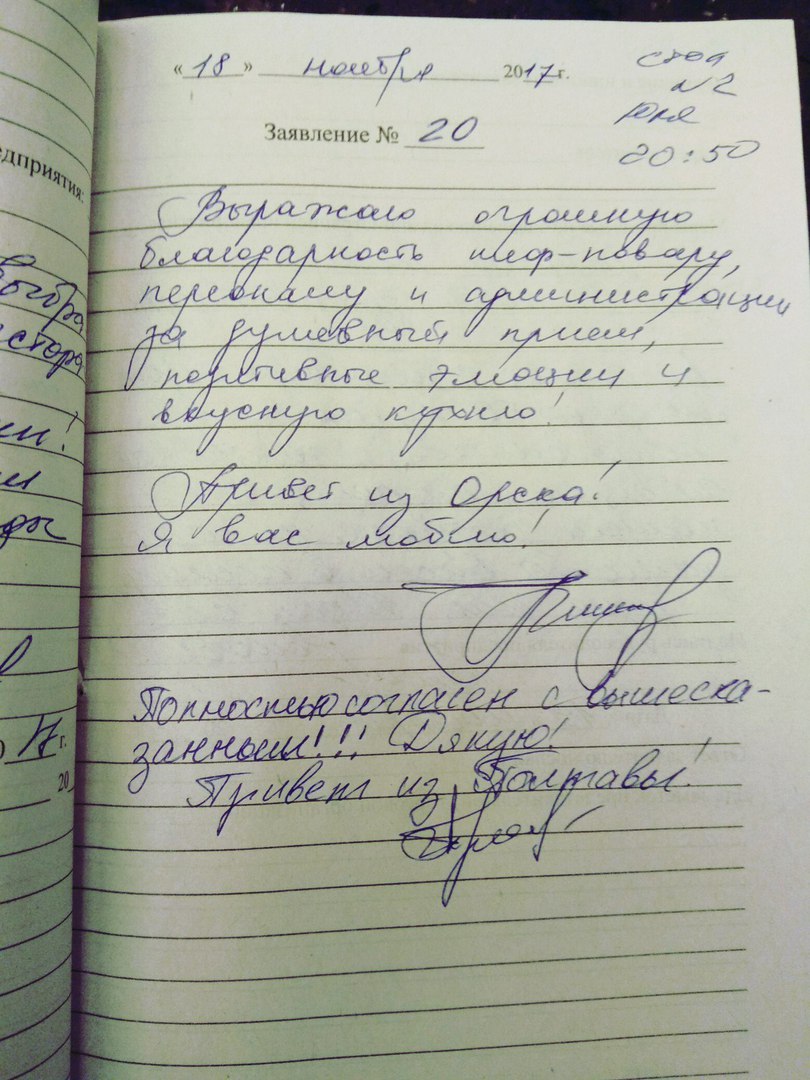 едприятия:
«18» ноября 2017 г.
стол
№2
Юля
20:50
Заявление № 20
Выражаю огромную
благодарность шеф-повару,
персоналу и администрации
за душевный прием,
позитивные эмоции и
вкусную кухню!
Привет из Орска!
Я вас люблю!
Полностью согласен с вышеска-
занным!!! Дякую!
Привет из Полтавы!
17 г.
20